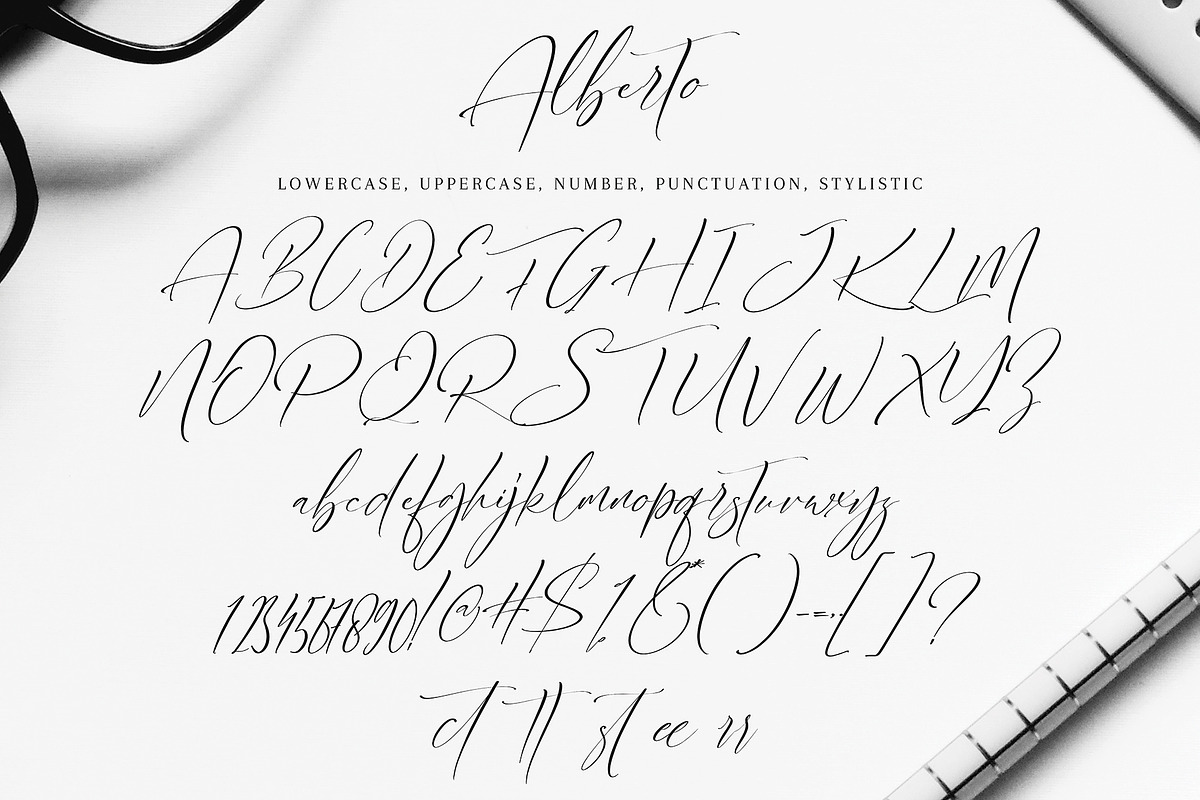 Alberto
LOWERCASE, UPPERCASE, NUMBER, PUNCTUATION, STYLISTIC
ABCDEFGHIJKLM
NOPQRSTUVWXYZ
abcdefghijklmnopqrstuvwxyz
1234567890!@#$%&*()-=:,.[]?
ct tt st ee rr